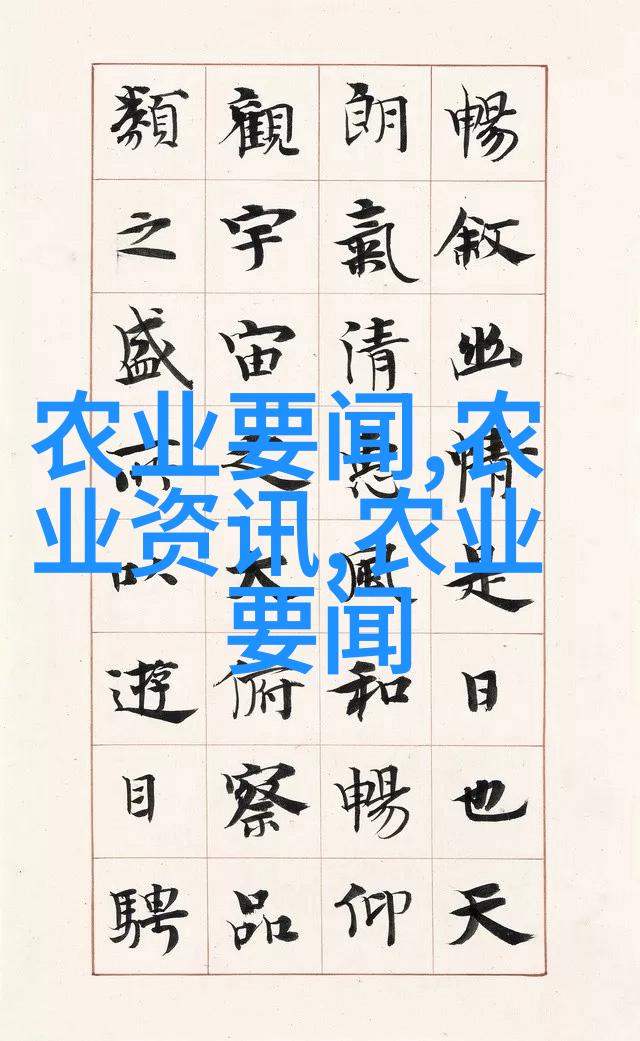 暢敘幽情是日也天
朗氣清惠風和暢仰
觀宇宙之大俯察品
類之盛所以遊目騁
农业要闻,农
业资讯,农业
要闻